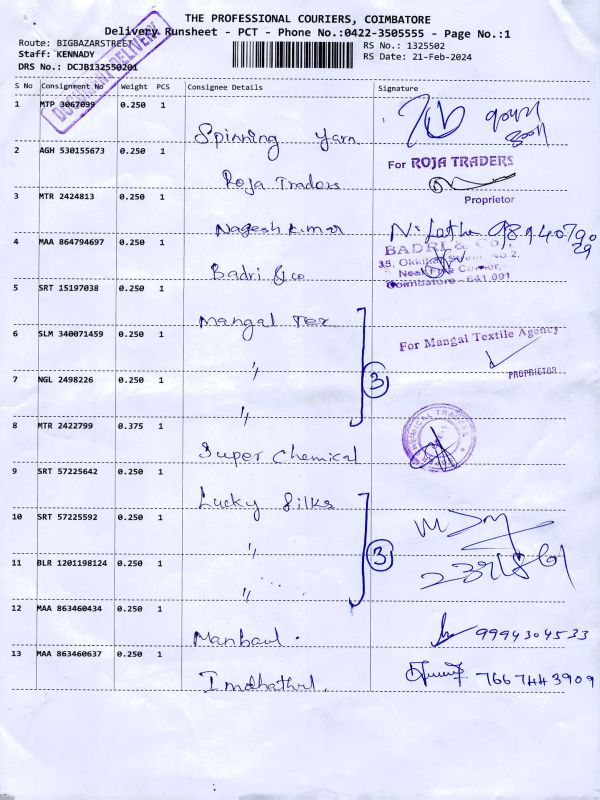 THE PROFESSIONAL COURIERS, COIMBATORE
Delivery Runsheet - PCT - Phone No.:0422-3505555 - Page No.:1
Route: BIGBAZARSTREET
RS No.: 1325502
Staff: KENNADY
RS Date: 21-Feb-2024
DRS No.: DCJB132550201
DOCUMENT DELIVERY
S No Consignment No Weight PCS Consignee Details Signature
1 MTP 3067099 0.250 1 Spinning Yarn
2 AGH 530155673 0.250 1 Roja Traders
For ROJA TRADERS
Proprietor
3 MTR 2424813 0.250 1 Nagesh kumar
4 MAA 864794697 0.250 1 Badri & co
BADRI & Co,
Coimbatore - 641 001
5 SRT 15197038 0.250 1 Mangal Tex
6 SLM 340071459 0.250 1 "
For Mangal Textile Agency
PROPRIETOR
7 NGL 2498226 0.250 1 " 3
8 MTR 2422799 0.375 1 Super Chemical
9 SRT 57225642 0.250 1 Lucky Silks
10 SRT 57225592 0.250 1 "
11 BLR 1201198124 0.250 1 " 3
12 MAA 863460434 0.250 1 9994304533
13 MAA 863460637 0.250 1 7667443909